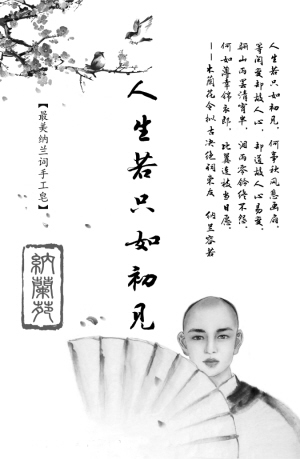 人生若只如初见，何事秋风悲画扇，
等闲变却故人心，却道故人心易变。
骊山雨罢清宵半，泪雨零铃终不怨，
何如薄幸锦衣郎，比翼连枝当日愿。
——木兰花令拟古决绝词柬友 纳兰容若
人生若只如初见
【最美纳兰词手工皂】
納蘭苑